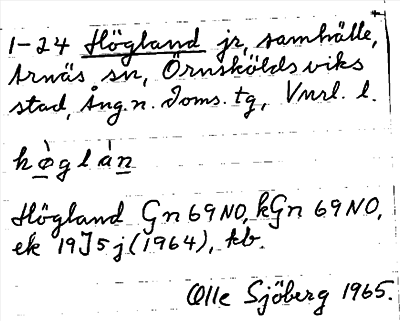 1-24 Högland jr, samhälle,
Arnäs sn, Örnsköldsviks
stad, Ång. n. Doms. tg, Vnrl. l.
hø̀glàn
Högland Gn 69 NO, kGn 69 NO,
ek 19J5j (1964), kb.
Olle Sjöberg 1965.